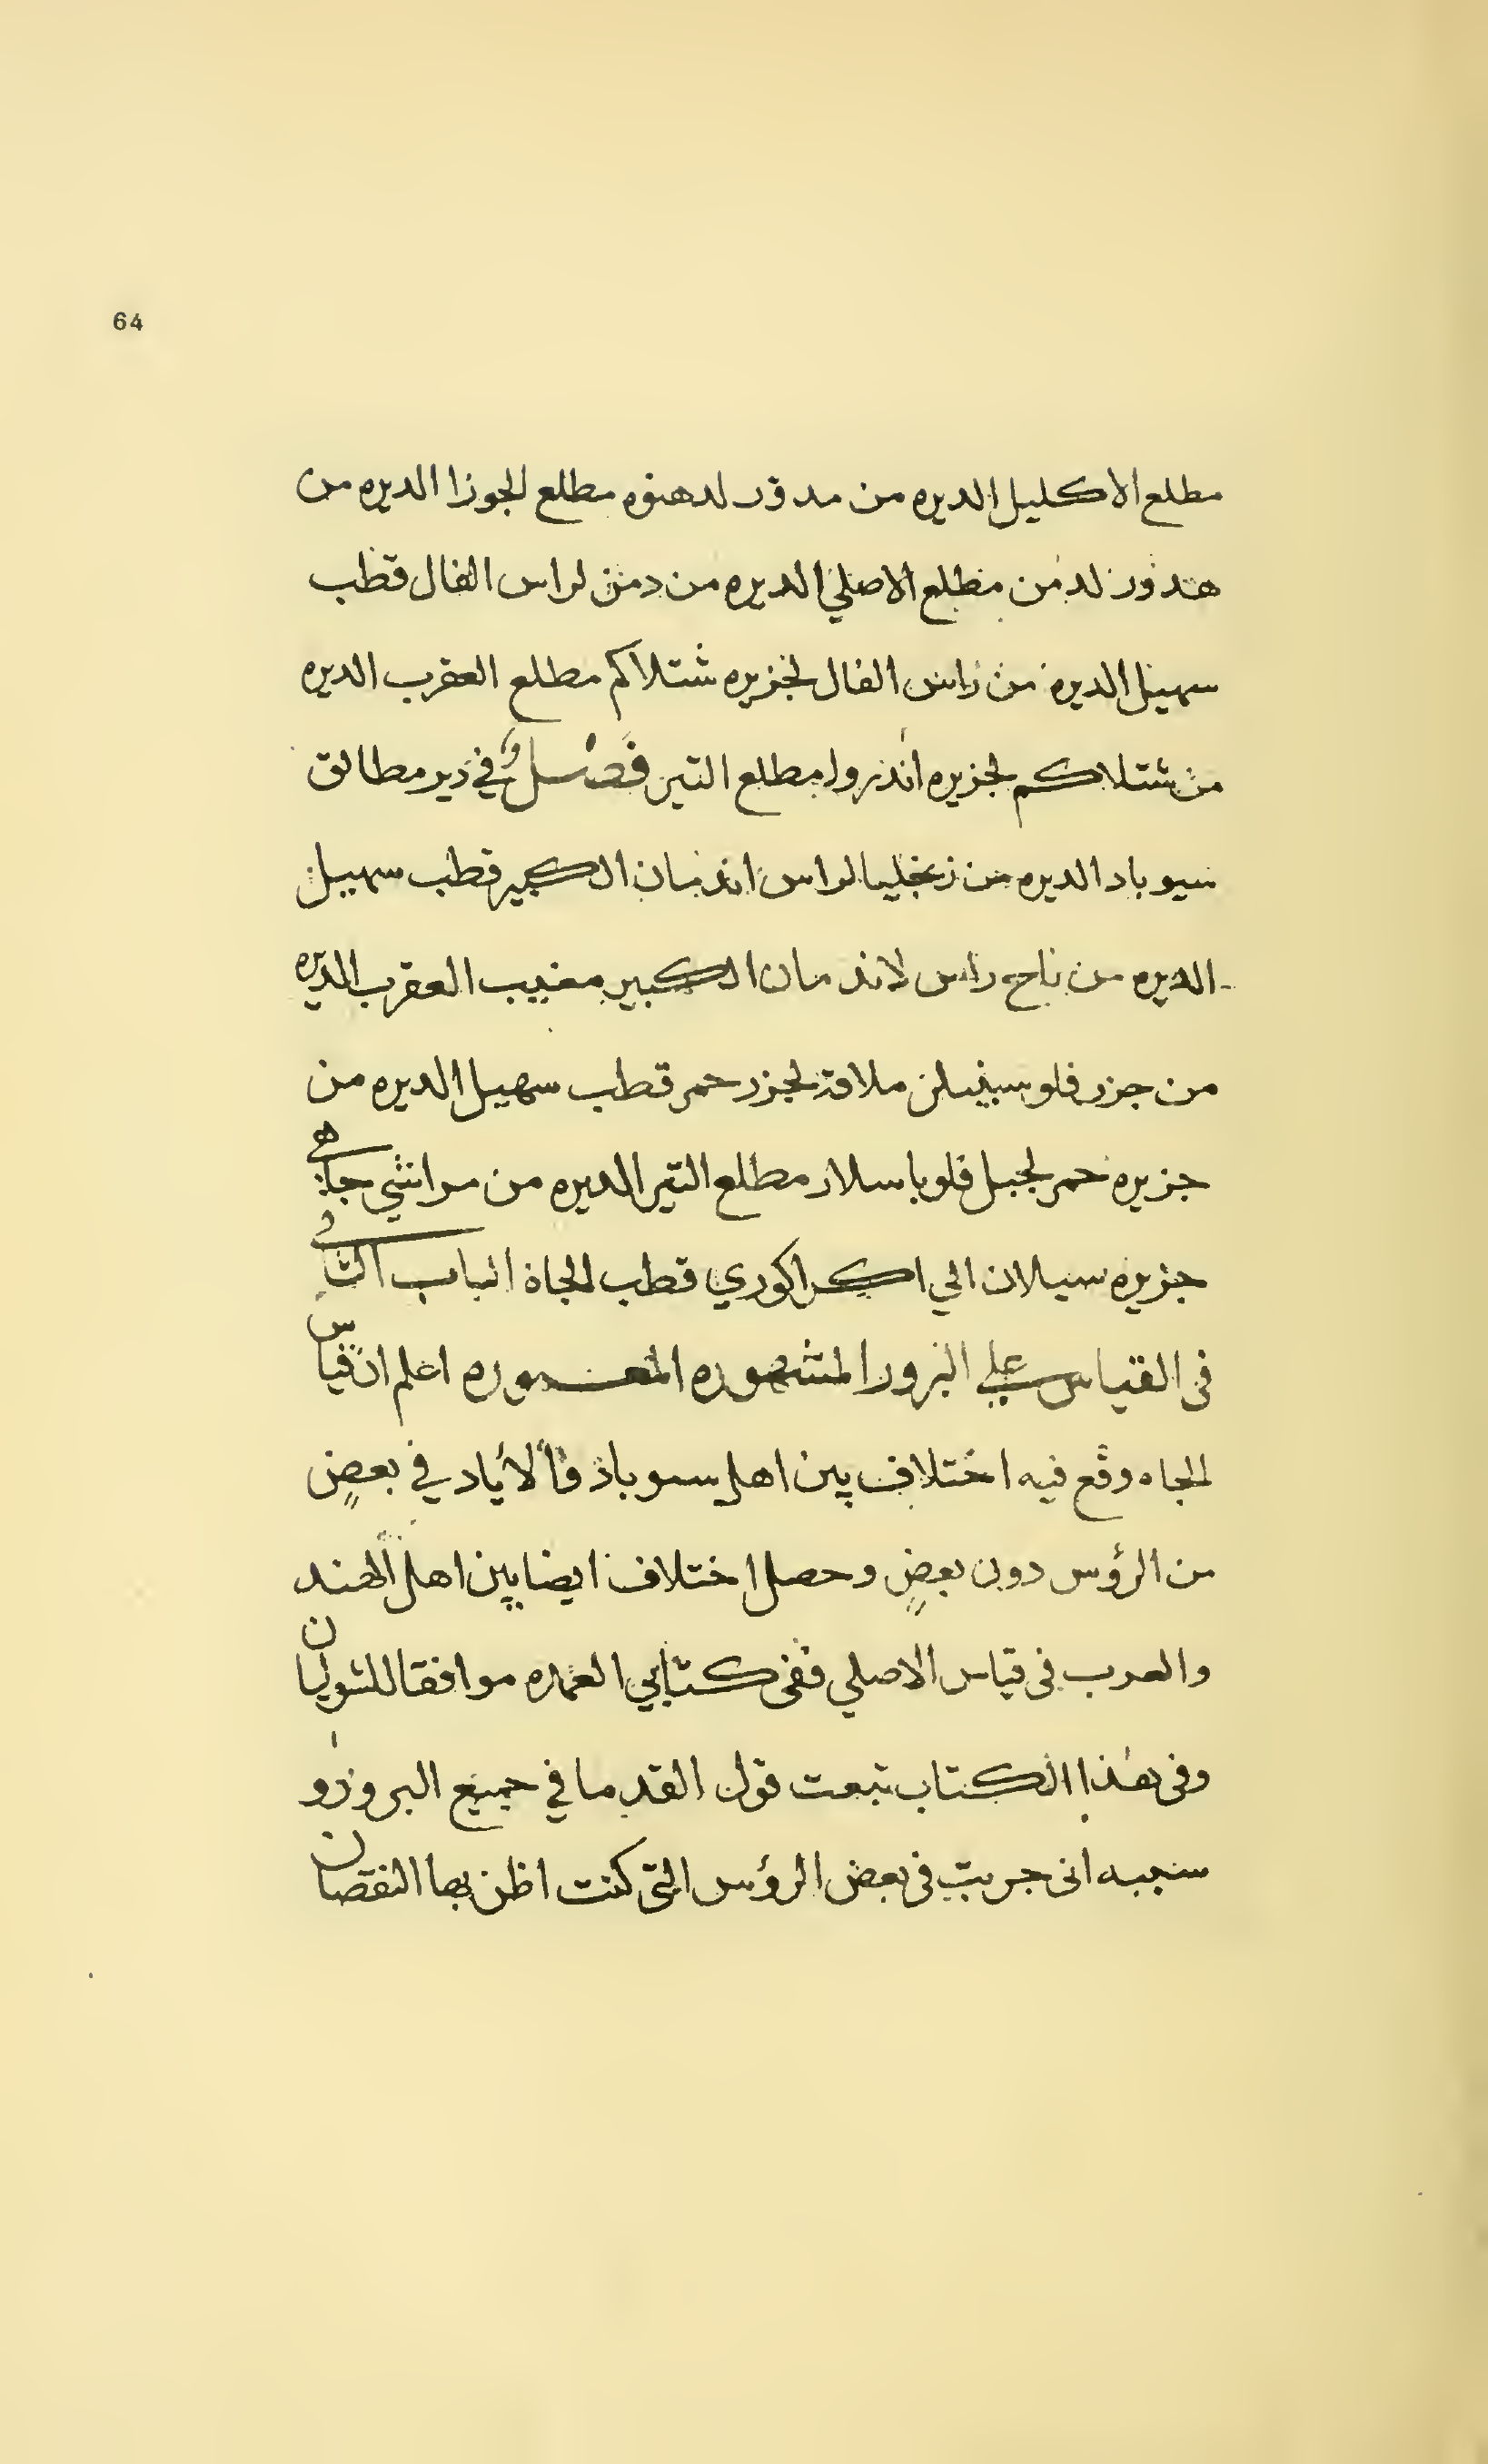 64
مطلع الاكليل الديره من مدوّر لدهنوه مطلع الجوزا الديره من
هندور لدمن مطلع الاصلي الديره من دمن لراس الفال قطب
سهيل الديره من راس الفال لجزيره شتلاكم مطلع العقرب الديره
من شتلاكم لجزيره اندروا مطلع التير فصل في دير مطالق
سيوباد الديره من زنجليا لراس اندمان الكبير قطب سهيل
الديره من ناحه راس لاندمان الكبير مغيب العقرب الديره
من جزر فلو سنبيلن ملاقة لجزر حمر قطب سهيل الديره من
جزيره حمر لجبل فلوباسلار مطلع التير الديره من مراشي جاهي
جزيره سيلان الي اكراكوري قطب الجاة الباب الثاني
في القياس علي البرور المشهوره المعموره اعلم ان قياس
الجاه وقع فيه اختلاف بين اهل سوباد فالاياد في بعضٍ
من الرؤس دون بعضٍ وحصل اختلاف ايضا بين اهل الهند
والعرب في قياس الاصلي ففي كتابي العمده موافقا للشوليان
وفي هذا الكتاب تبعت قول القدما في جميع البرورو
سببه اني جربت في بعض الرؤس التي كنت اظن بها النقصان